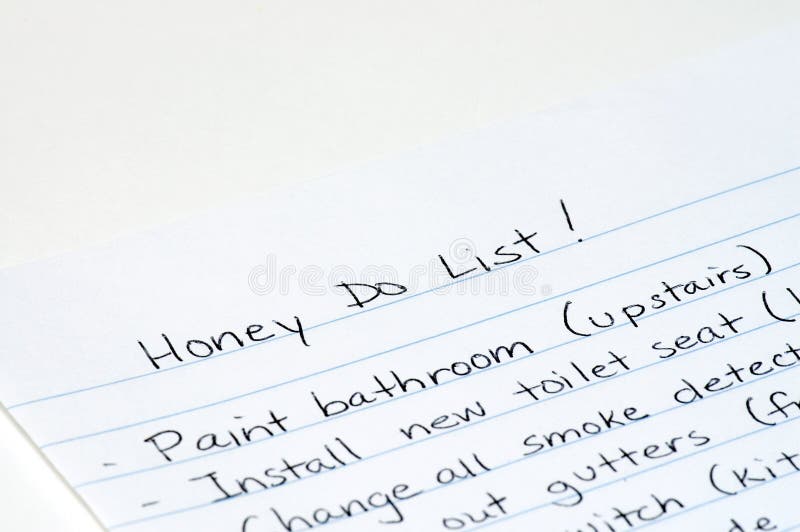 Honey Do List!
- Paint bathroom (upstairs)
- Install new toilet seat (
Change all smoke detect
out gutters (f
itch (kit
dreamstime